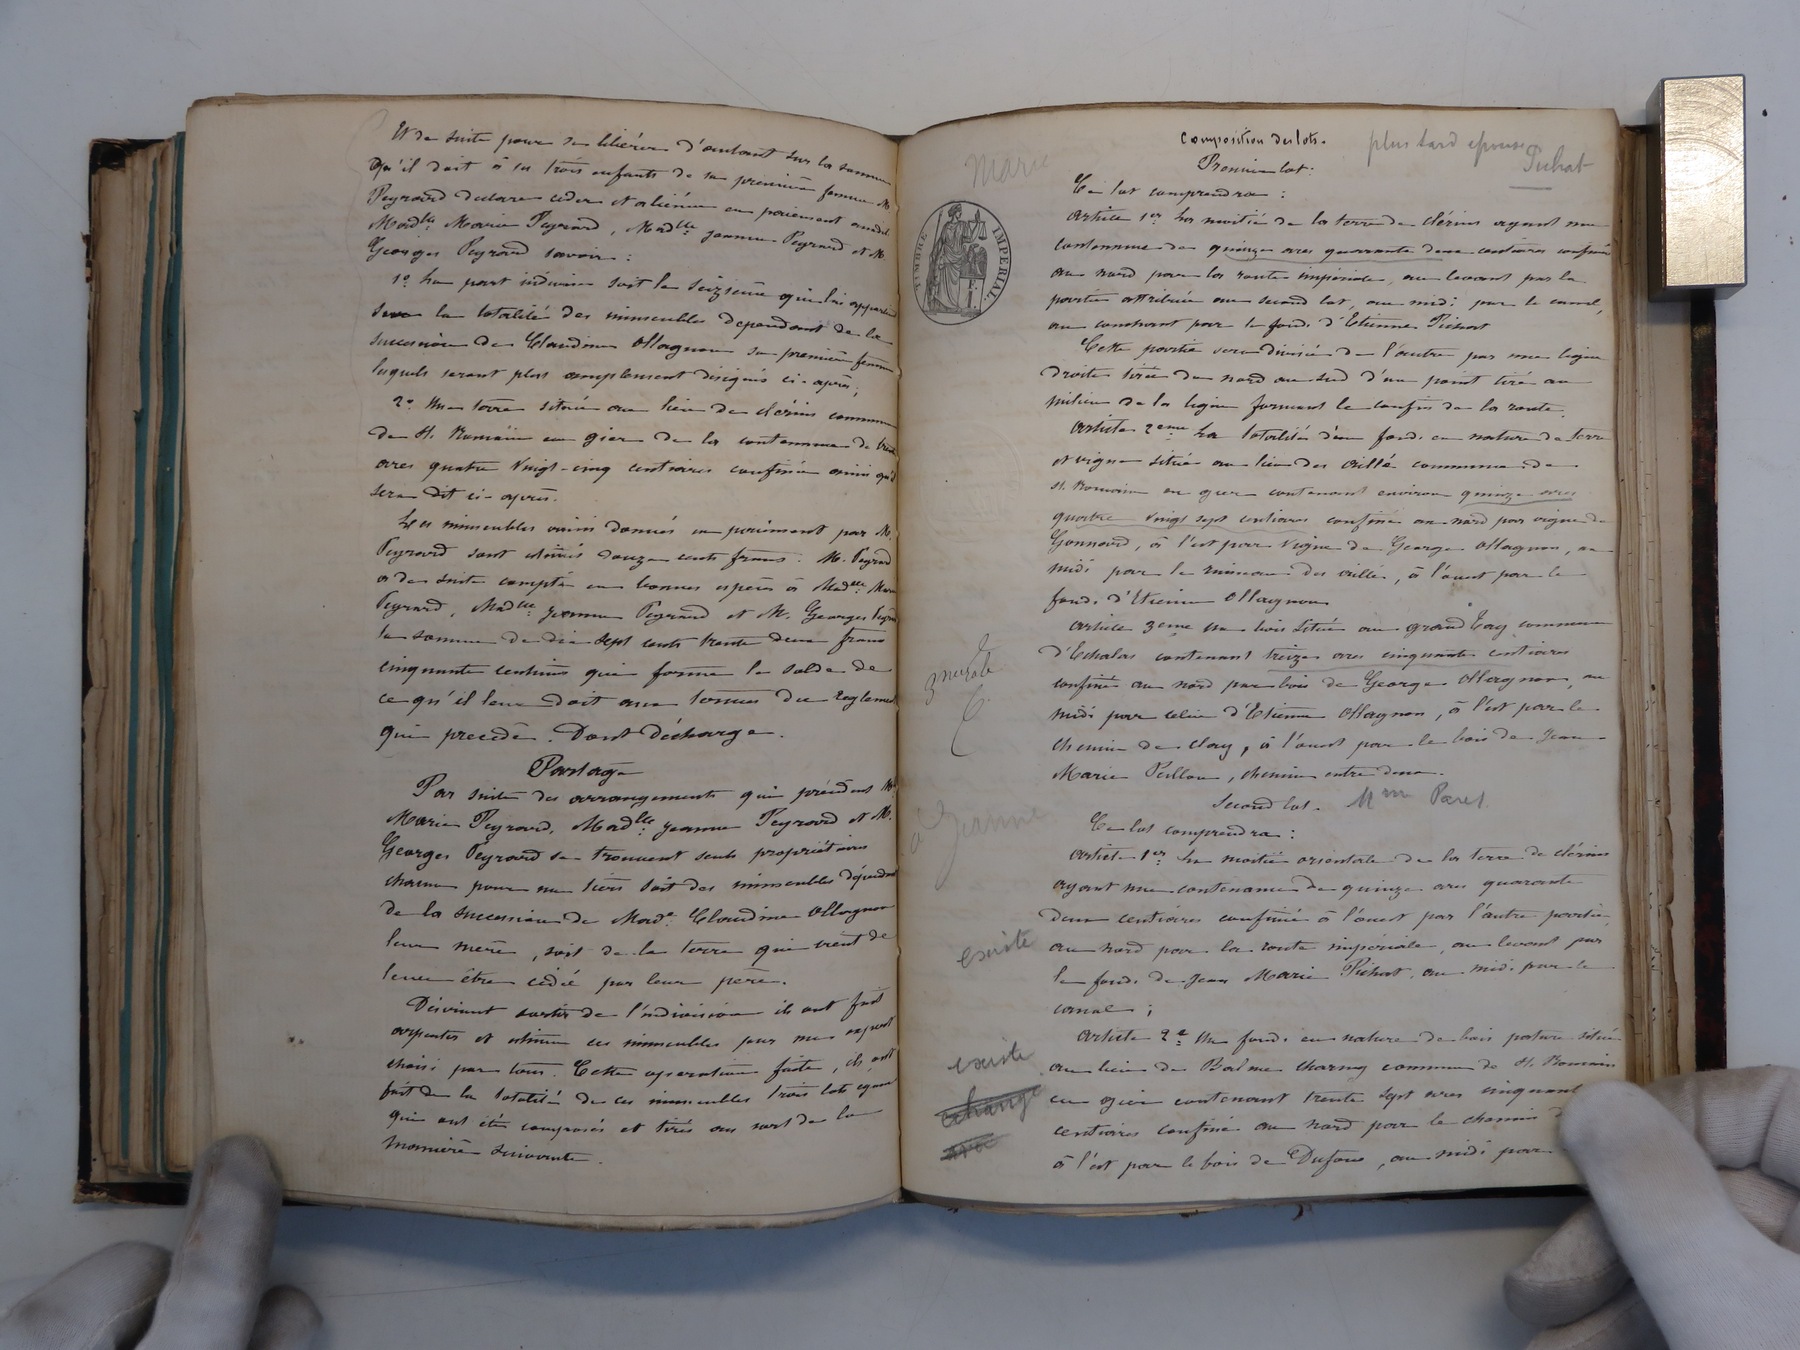 Et de suite pour se libérer d'autant sur la somme
qu'il doit à ses trois enfants de sa première femme M.
Peyrard déclare céder et aliéner en paiement audit
Madlle Marie Peyrard, Madlle Jeanne Peyrard et M.
Georges Peyrard savoir :
1° La part indivise soit le seizième qui lui appartient
sur la totalité des immeubles dépendant de la
succession de Claudine Ollagnon sa première femme
lesquels seront plus amplement désignés ci-après;
2° Une terre située au lieu de Clérins commune
de St. Romain en gier de la contenance de trente
ares quatre vingt-cinq centiares confinée ainsi qu'il
sera dit ci-après.
Les immeubles ainsi donnés en paiement par M.
Peyrard sont estimés douze cents francs. M. Peyrard
a de suite compté en bonnes espèces à Madlle Marie
Peyrard, Madlle Jeanne Peyrard et M. Georges Peyrard
la somme de dix sept cents trente deux francs
cinquante centimes qui forme le solde de
ce qu'il leur doit aux termes du règlement
qui précède. Dont décharge.
Partage
Par suite des arrangements qui précèdent Mlle
Marie Peyrard, Madlle Jeanne Peyrard et M.
Georges Peyrard se trouvent seuls propriétaires
chacun pour un tiers soit des immeubles dépendant
de la succession de Made Claudine Ollagnon
leur mère, soit de la terre qui vient de
leur être cédée par leur père.
Désirant sortir de l'indivision ils ont fait
arpenter et estimer ces immeubles par un expert
choisi par tous. Cette opération faite, ils ont
fait de la totalité de ces immeubles trois lots égaux
qui ont été composés et tirés au sort de la
manière suivante.
Composition des lots.
plus tard épouse
Pichat
Marie
Premier lot:
Ce lot comprendra :
TIMBRE IMPERIAL
Article 1er La moitié de la terre de Clérins ayant une
contenance de quinze ares quarante deux centiares confinée
au nord par la route impériale, au levant par la
portion attribuée au second lot, au midi par le canal,
au couchant par le fonds d'Etienne Pichat
Cette partie sera divisée de l'autre par une ligne
droite tirée du nord au sud d'un point tiré au
milieu de la ligne formant le confin de la route.
Article 2eme La totalité d'un fonds en nature de terre
et vigne située au lieu des Oillé commune de
St. Romain en gier contenant environ quinze ares
quatre vingt sept centiares confiné au nord par vigne de
Gonnard, à l'est par vigne de George Ollagnon, au
midi par le ruisseau des oillés, à l'ouest par le
fonds d'Etienne Ollagnon
Article 3eme Un bois situé au grand Cay commune
d'Echalas contenant treize ares cinquante centiares
confiné au nord par bois de George Ollagnon, au
midi par celui d'Etienne Ollagnon, à l'est par le
chemin de Clay, à l'ouest par le bois de Jean
Marie Peillon, chemin entre deux.
Second lot. Mme Paret
à Jeanne
Ce lot comprendra :
Article 1er La moitié orientale de la terre de Clérins
ayant une contenance de quinze ares quarante
deux centiares confinée à l'ouest par l'autre portion
existe
au nord par la route impériale, au levant par
le fonds de Jean Marie Pichat, au midi par le
canal ;
Article 2e Un fonds en nature de bois pature située
existe
au lieu de Balme Charmy commune de St. Romain
échangé
en gier contenant trente sept ares cinquante
centiares confiné au nord par le chemin
avec
à l'est par le bois de Dufour, au midi par